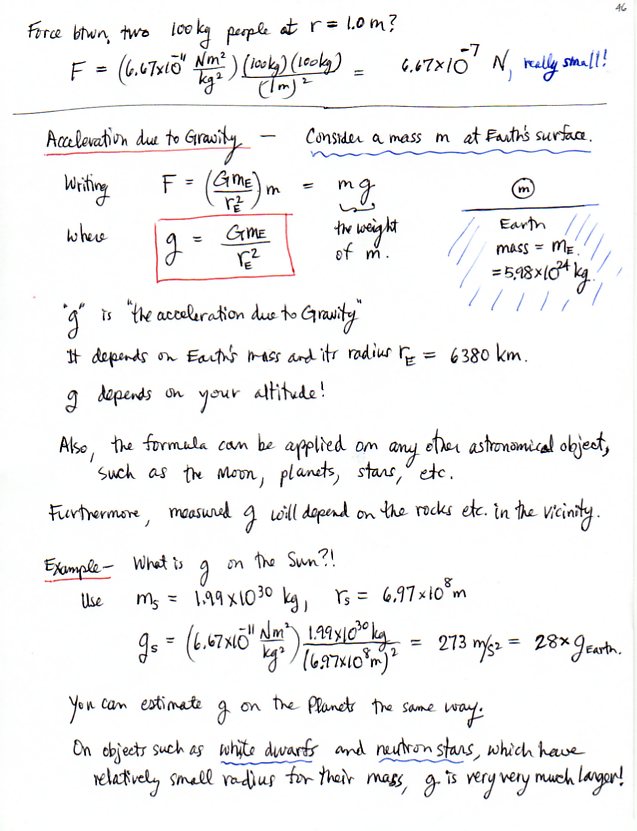 46
Force btwn, two 100kg people at r = 1.0m?
F = (6.67x10⁻¹¹ Nm²/kg²) (100kg)(100kg)/(1m)² = 6.67x10⁻⁷ N, really small!
Acceleration due to Gravity — Consider a mass m at Earth's surface.
Writing F = (GmE/rE²) m = mg
m
where g = GmE/rE² the weight of m.
Earth
mass = mE
= 5.98x10²⁴ kg.
"g" is "the acceleration due to Gravity"
It depends on Earth's mass and its radius rE = 6380 km.
g depends on your altitude!
Also, the formula can be applied on any other astronomical object,
such as the Moon, planets, stars, etc.
Furthermore, measured g will depend on the rocks etc. in the vicinity.
Example — What is g on the Sun?!
Use ms = 1.99x10³⁰ kg, rs = 6.97x10⁸m
gs = (6.67x10⁻¹¹ Nm²/kg²) 1.99x10³⁰kg/(6.97x10⁸m)² = 273 m/s² = 28x gEarth.
You can estimate g on the Planets the same way.
On objects such as white dwarfs and neutron stars, which have
relatively small radius for their mass, g is very very much larger!